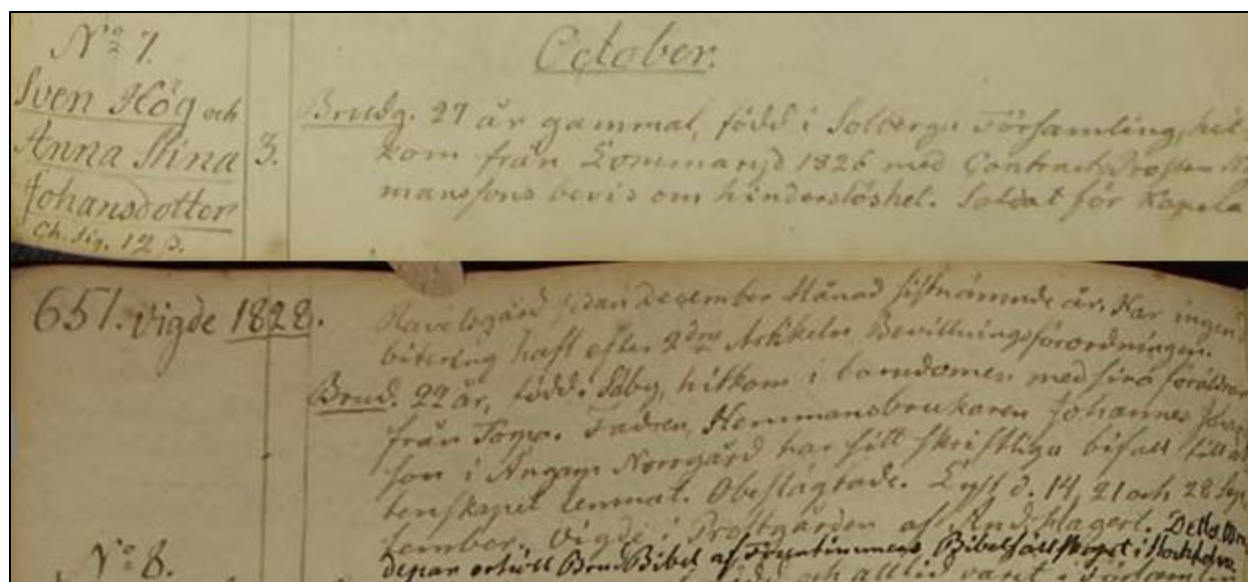 October.
No 7.
Sven Hög och
Anna Stina
Johansdotter
Ch. Sig. 12 s.
3.
Brudg. 27 år gammal, född i Solberga Församling, hit
kom från Lommaryd 1826 med Contracts Prosten
manssons bevis om hinderslöshet. Soldat för Kapela
651. Vigde 1828.
Ravelsgård sedan December Månad sistnämnde år. Har ingen
bitering haft efter 2dra Artikeln Bevillningsförordningen.
Brud. 22 år, född i Säby, hitkom i barndomen med sina föräldrar
från Torpa. Fadren, Hemmansbrukaren Johannes
son i Norrgård har sitt skriftliga bifall till
tenskapet lemnat. Obeslägtade. Lyst d. 14, 21 och 28 Sep
tember. Vigde i Prostgården af And. Detta
depar erhöll Brud Bibel af Fruntimmers Bibelsällskapet i Stockholm.
No 8.
och alltid varit i